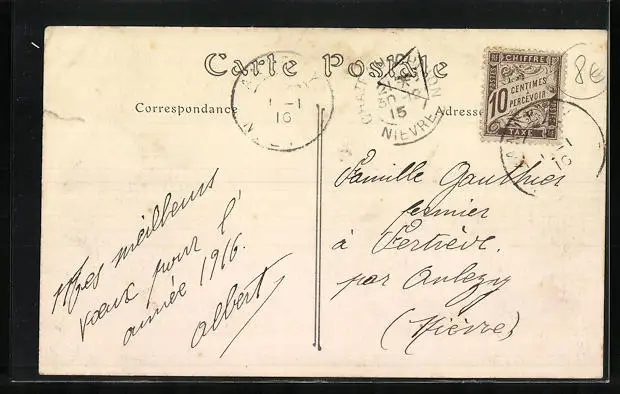 Carte Postale
Correspondance
Adresse
CHIFFRE
10 CENTIMES
A
PERCEVOIR
TAXE
1 -1
16
15
NIEVRE
8€
Mes meilleurs
voeux pour l'
année 1916.
Albert
Famille Gauthier
fermier
à Fertrève.
par Anlezy
(Nièvre)